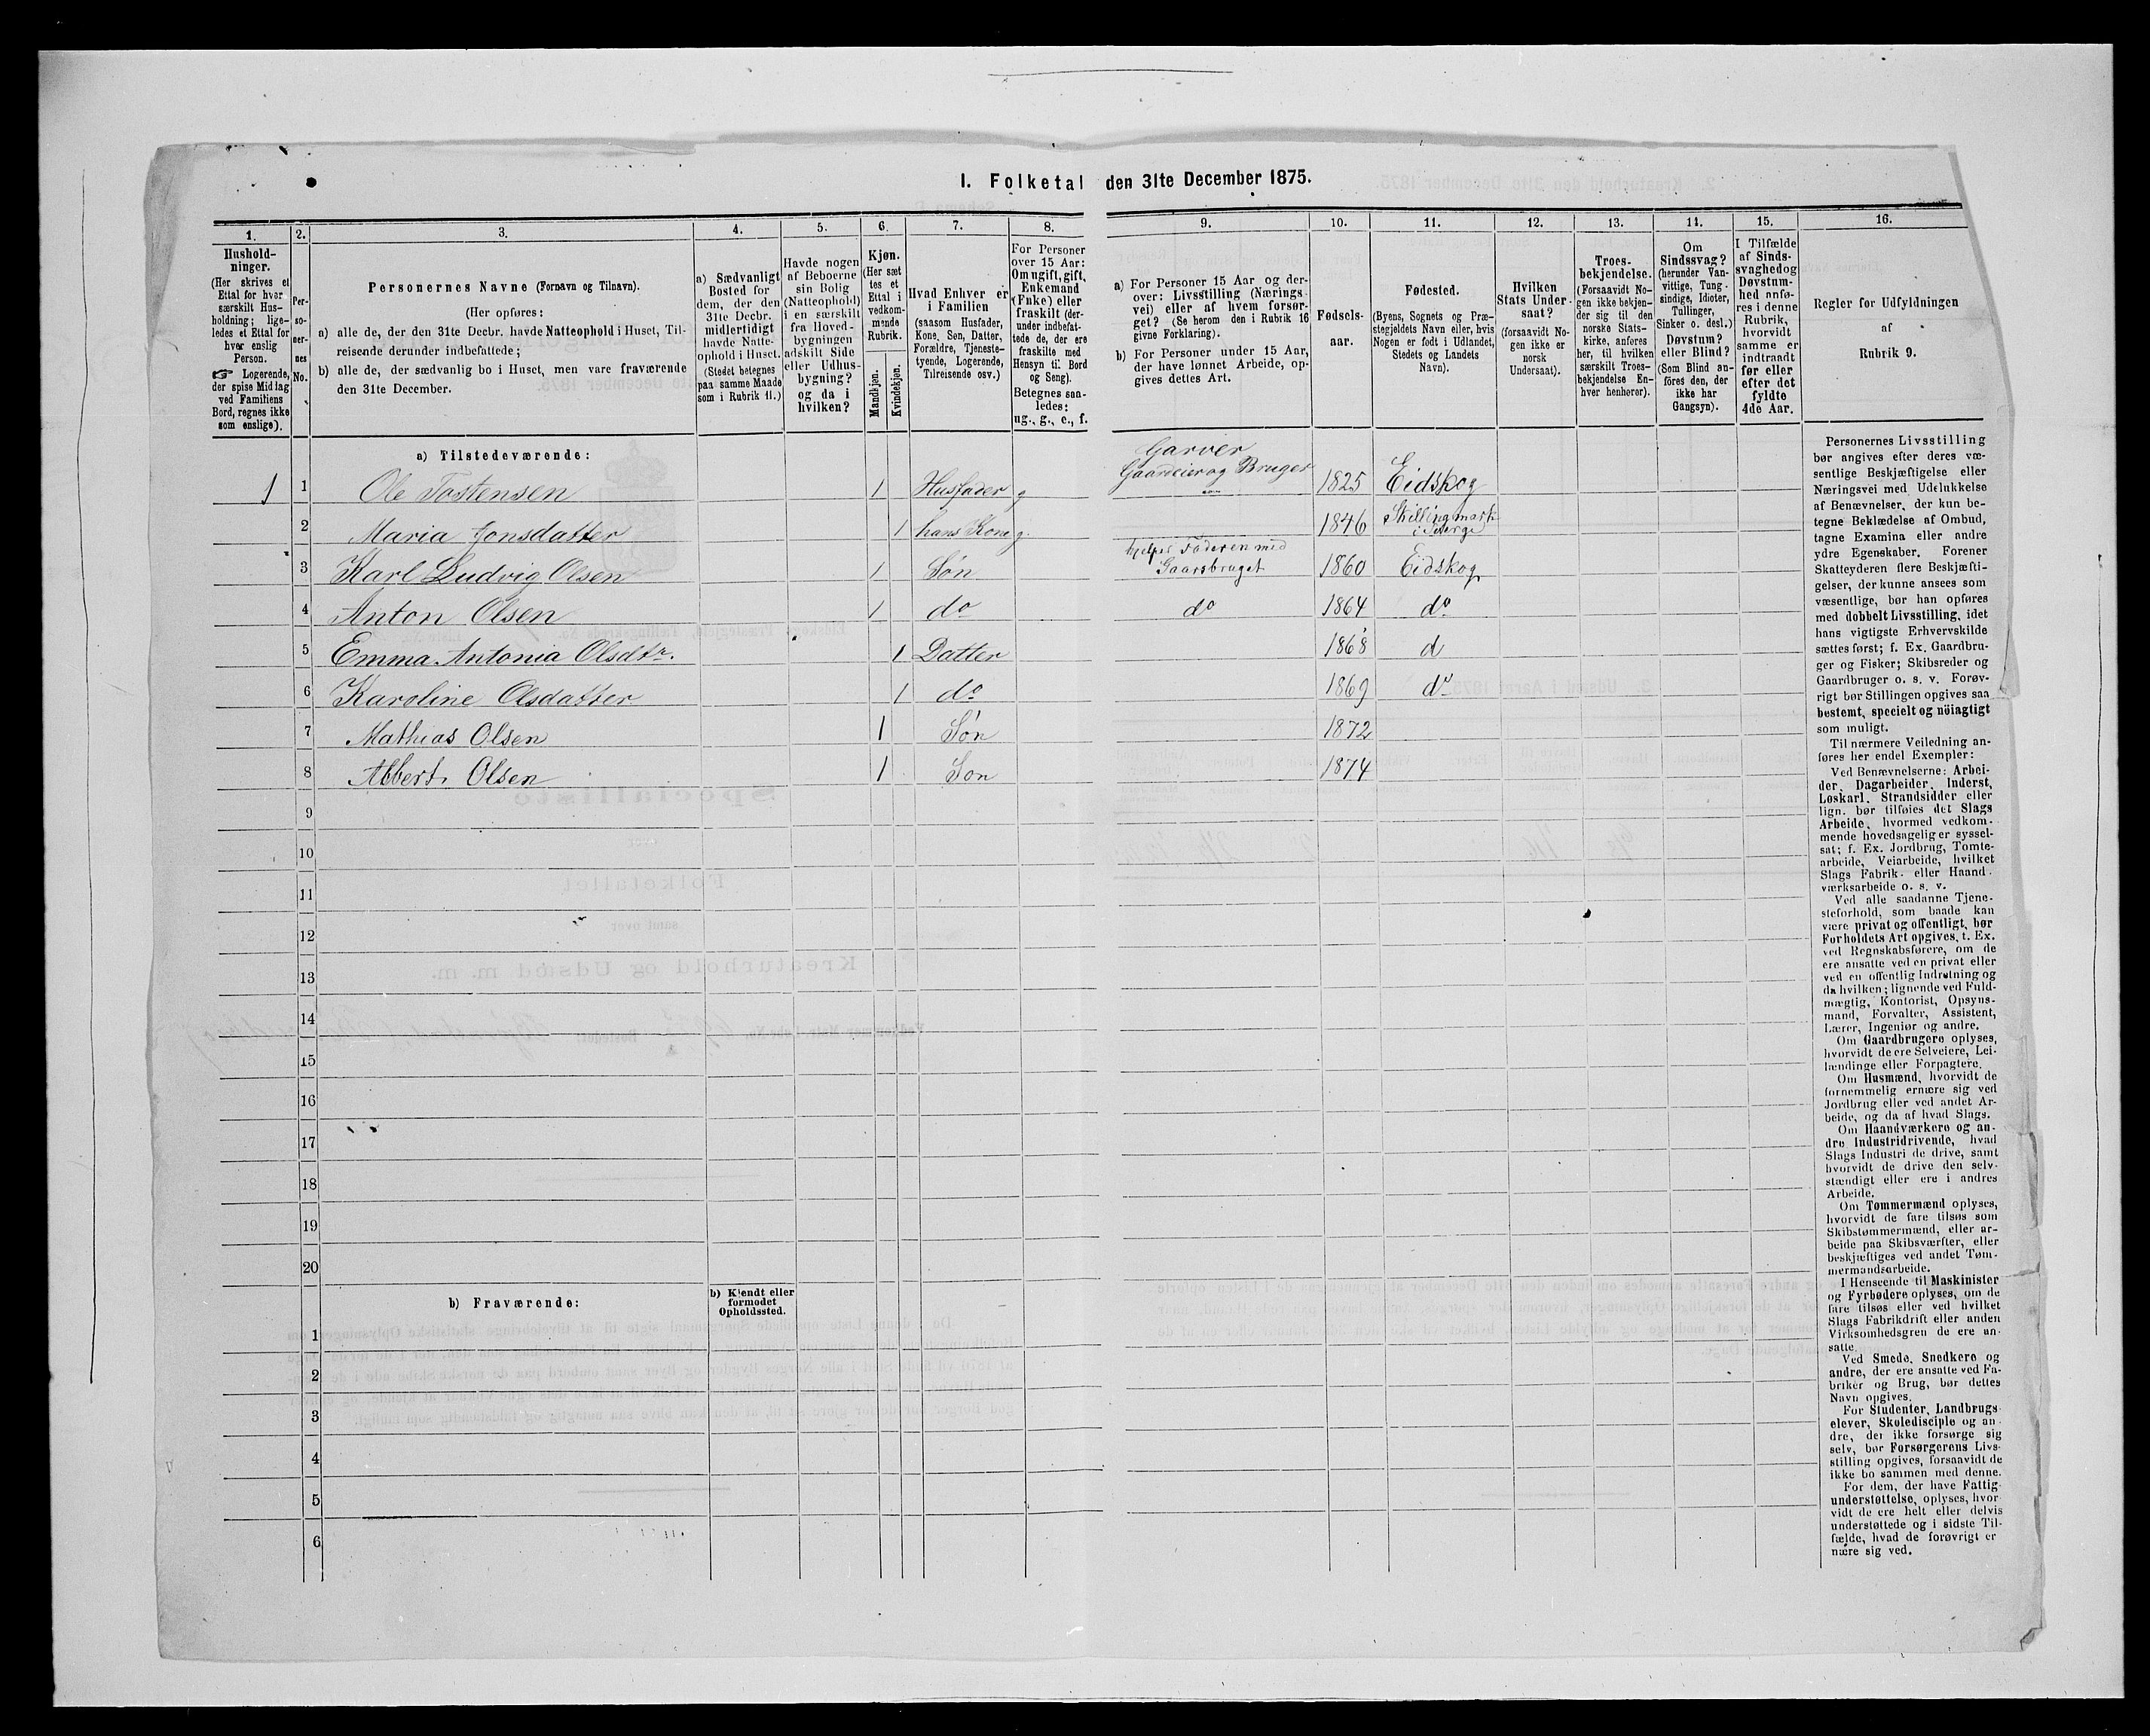 I. Folketal den 31te December 1875.
1. 2. 3. 4. 5. 6. 7. 8. 9. 10. 11. 12. 13. 14. 15. 16.
Hushold-
ninger.
(Her skrives et
Ettal for hver
særskilt Hus-
holdning; lige-
ledes et Ettal for
hver enslig
Person.
☞ Logerende,
der spise Middag
ved Familiens
Bord, regnes ikke
som enslige).
Per-
so-
ner-
nes
No.
Personernes Navne (Fornavn og Tilnavn).
(Her opføres:
a) alle de, der den 31te Decbr. havde Natteophold i Huset, Til-
reisende derunder indbefattede;
b) alle de, der sædvanlig bo i Huset, men vare fraværende
den 31te December.
a) Sædvanligt
Bosted for
dem, der den
31te Decbr.
midlertidigt
havde Natte-
ophold i Huset.
(Stedet betegnes
paa samme Maade
som i Rubrik 11.)
Havde nogen
af Beboerne
sin Bolig
(Natteophold)
i en særskilt
fra Hoved-
bygningen
adskilt Side
eller Udhus-
bygning?
og da i
hvilken?
Kjøn.
(Her sæt
tes et
Ettal i
vedkom-
mende
Rubrik.
Mandkjøn.
Kvindekjøn.
Hvad Enhver er
i Familien
(saasom Husfader,
Kone, Søn, Datter,
Forældre, Tjeneste-
tyende, Logerende,
Tilreisende osv.)
For Personer
over 15 Aar:
Om ugift, gift,
Enkemand
(Enke) eller
fraskilt (der-
under indbefat-
tede de, der ere
fraskilte med
Hensyn til Bord
og Seng).
Betegnes saa-
ledes:
ug., g., e., f.
a) For Personer 15 Aar og der-
over: Livsstilling (Nærings-
vei) eller af hvem forsør-
get? (Se herom den i Rubrik 16
givne Forklaring).
b) For Personer under 15 Aar,
der have lønnet Arbeide, op-
gives dettes Art.
Fødsels-
aar.
Fødested.
(Byens, Sognets og Præ-
stegjeldets Navn eller, hvis
Nogen er født i Udlandet,
Stedets og Landets
Navn).
Hvilken
Stats Under-
saat?
(forsaavidt No-
gen ikke er
norsk
Undersaat).
Troes-
bekjendelse.
(Forsaavidt No-
gen ikke bekjen-
der sig til den
norske Stats-
kirke, anføres
her, til hvilken
særskilt Troes-
bekjendelse En-
hver henhører).
Om
Sindssvag?
(herunder Van-
vittige, Tung-
sindige, Idioter,
Tullinger,
Sinker o. desl.)
Døvstum?
eller Blind?
(Som Blind an-
føres den, der
ikke har
Gangsyn).
I Tilfælde
af Sinds-
svaghed og
Døvstum-
hed anfø-
res i denne
Rubrik,
hvorvidt
samme er
indtraadt
før eller
efter det
fyldte
4de Aar.
Regler for Udfyldningen
af
Rubrik 9.
a) Tilstedeværende:
Garver
1 1 Ole Tostensen 1 Husfader g Gaardeier og Bruger 1825 Eidskog
2 Maria Jonsdatter 1 hans Kone g. 1846 Skillingmark
i Sverge
hjelper Faderen med
3 Karl Ludvig Olsen 1 Søn Gaarsbruget 1860 Eidskog
4 Anton Olsen 1 do do 1864 do
5 Emma Antonia Olsdtr. 1 Datter 1868 d
6 Karoline Olsdatter 1 do 1869 do
7 Mathias Olsen 1 Søn 1872
8 Albert Olsen 1 Son 1874
9
10
11
12
13
14
15
16
17
18
19
20
b) Fraværende:
b) Kjendt eller
formodet
Opholdssted.
1
2
3
4
5
6
Personernes Livsstilling
bør angives efter deres væ-
sentlige Beskjæftigelse eller
Næringsvei med Udelukkelse
af Benævnelser, der kun be-
tegne Beklædelse af Ombud,
tagne Examina eller andre
ydre Egenskaber. Forener
Skatteyderen flere Beskjæfti-
gelser, der kunne ansees som
væsentlige, bør han opføres
med dobbelt Livsstilling, idet
hans vigtigste Erhvervskilde
sættes først; f. Ex. Gaardbru-
ger og Fisker; Skibsreder og
Gaardbruger o. s. v. Forøv-
rigt bør Stillingen opgives saa
bestemt, specielt og nöiagtigt
som muligt.
Til nærmere Veiledning an-
føres her endel Exempler:
Ved Benævnelserne: Arbei-
der, Dagarbeider, Inderst,
Løskarl, Strandsidder eller
lign. bør tilføies det Slags
Arbeide, hvormed vedkom-
mende hovedsagelig er syssel-
sat; f. Ex. Jordbrug, Tomte-
arbeide, Veiarbeide, hvilket
Slags Fabrik- eller Haand-
værksarbeide o. s. v.
Ved alle saadanne Tjene-
steforhold, som baade kan
være privat og offentligt, bør
Forholdets Art opgives, t. Ex.
ved Regnskabsførere, om de
ere ansatte ved en privat eller
ved en offentlig Indretning og
da hvilken; lignende ved Fuld-
mægtig, Kontorist, Opsyns-
mand, Forvalter, Assistent,
Lærer, Ingeniør og andre.
Om Gaardbrugere oplyses,
hvorvidt de ere Selveiere, Lei-
lændinge eller Forpagtere.
Om Husmænd, hvorvidt de
fornemmelig ernære sig ved
Jordbrug eller ved andet Ar-
beide, og da af hvad Slags.
Om Haandværkere og an-
dre Industridrivende, hvad
Slags Industri de drive, samt
hvorvidt de drive den selv-
stændigt eller ere i andres
Arbeide.
Om Tømmermænd oplyses,
hvorvidt de fare tilsøs som
Skibstømmermænd, eller ar-
beide paa Skibsværfter, eller
beskjæftiges ved andet Tøm-
mermandsarbeide.
I Henseende til Maskinister
og Fyrbødere oplyses, om de
fare tilsøs eller ved hvilket
Slags Fabrikdrift eller anden
Virksomhedsgren de ere an-
satte.
Ved Smede, Snedkere og
andre, der ere ansatte ved Fa-
briker og Brug, bør dettes
Navn opgives.
For Studenter, Landbrugs-
elever, Skoledisciple og an-
dre, der ikke forsørge sig
selv, bør Forsørgerens Livs-
stilling opgives, forsaavidt de
ikke bo sammen med denne.
For dem, der have Fattig-
understøttelse, oplyses, hvor-
vidt de ere helt eller delvis
understøttede og i sidste Til-
fælde, hvad de forøvrigt er-
nære sig ved.